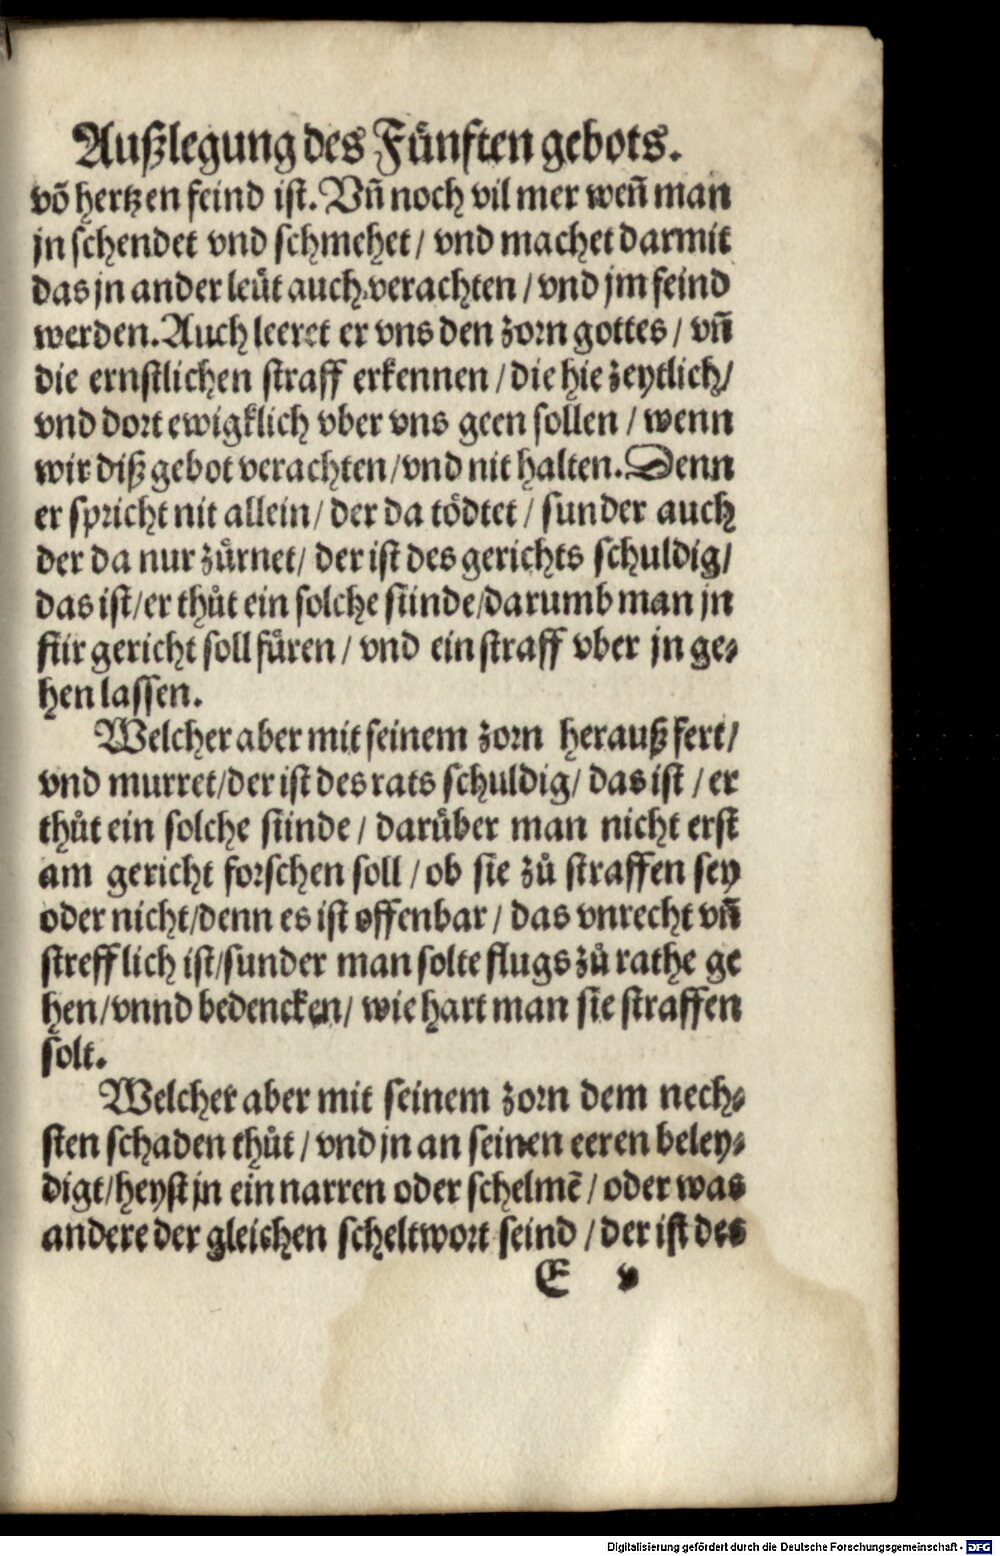 Außlegung des Fünften gebots.
võ hertzen feind ist. Vñ noch vil mer weñ man
jn schendet vnd schmehet / vnd machet darmit
das jn ander leüt auch verachten / vnd jm feind
werden. Auch leeret er vns den zorn gottes / vñ
die ernstlichen straff erkennen / die hie zeytlich /
vnd dort ewigklich vber vns geen sollen / wenn
wir diß gebot verachten / vnd nit halten. Denn
er spricht nit allein / der da tödtet / sunder auch
der da nur zürnet / der ist des gerichts schuldig /
das ist / er thůt ein solche sünde / darumb man jn
für gericht soll füren / vnd ein straff vber jn ge⸗
hen lassen.
Welcher aber mit seinem zorn herauß fert /
vnd murret / der ist des rats schuldig / das ist / er
thůt ein solche sünde / darüber man nicht erst
am gericht forschen soll / ob sie zů straffen sey
oder nicht / denn es ist offenbar / das vnrecht vñ
strefflich ist / sunder man solte flugs zů rathe ge
hen / vnnd bedencken / wie hart man sie straffen
solt.
Welcher aber mit seinem zorn dem nech⸗
sten schaden thůt / vnd jn an seinen eeren beley⸗
digt / heyst jn ein narren oder schelmē / oder was
andere der gleichen scheltwort seind / der ist des
E v
Digitalisierung gefördert durch die Deutsche Forschungsgemeinschaft - DFG